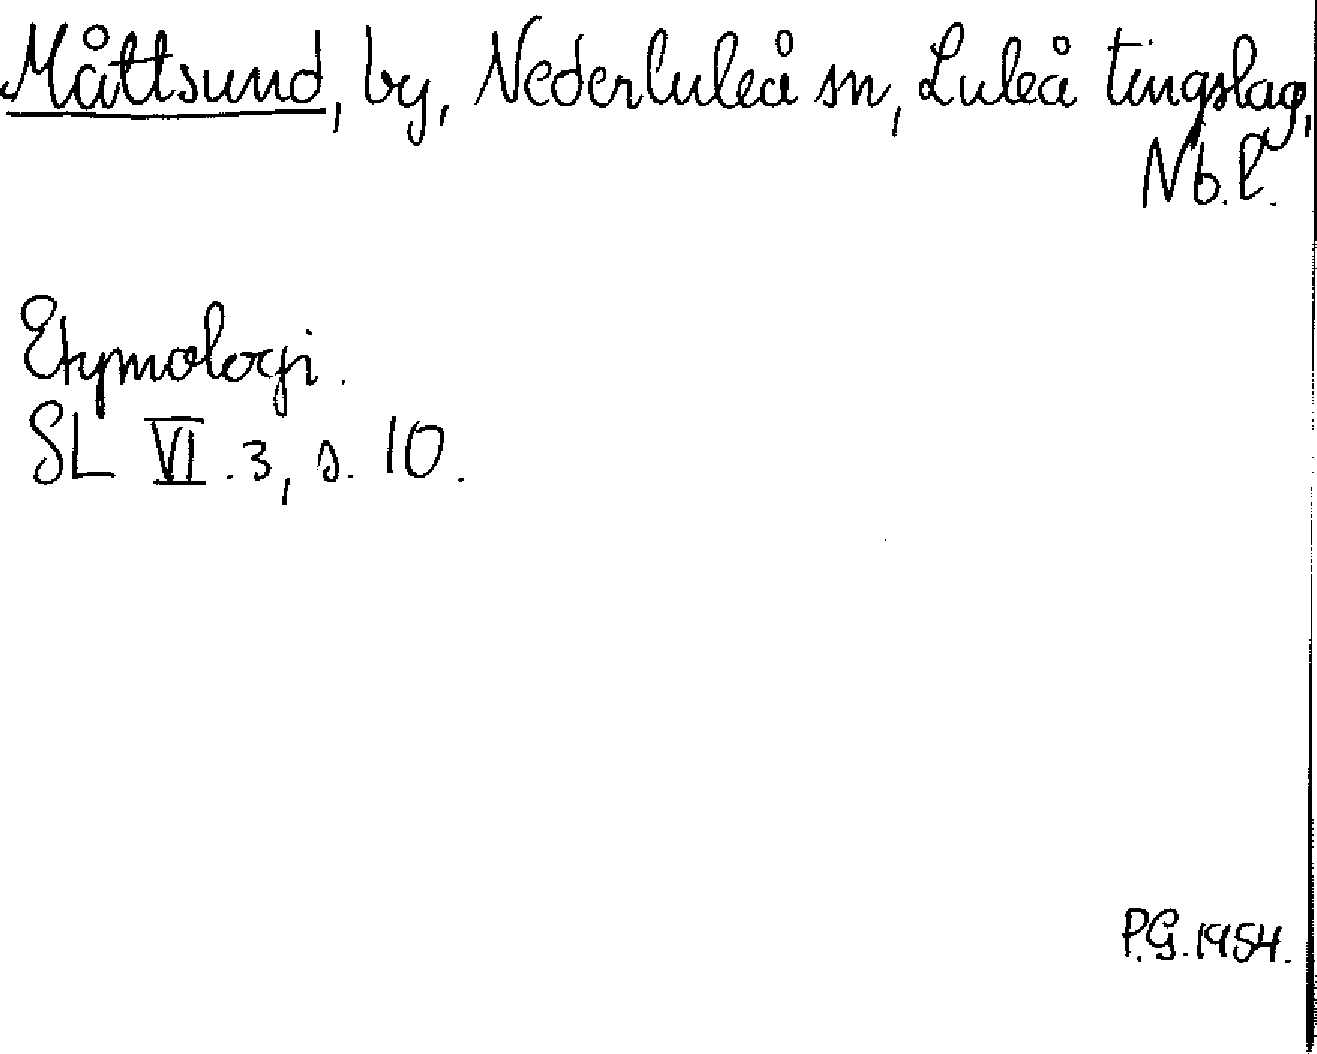 Måttsund, by, Nederluleå sn, Luleå tingslag,
Nb.l.
Etymologi.
SL VI.3, s. 10.
P.G. 1954.